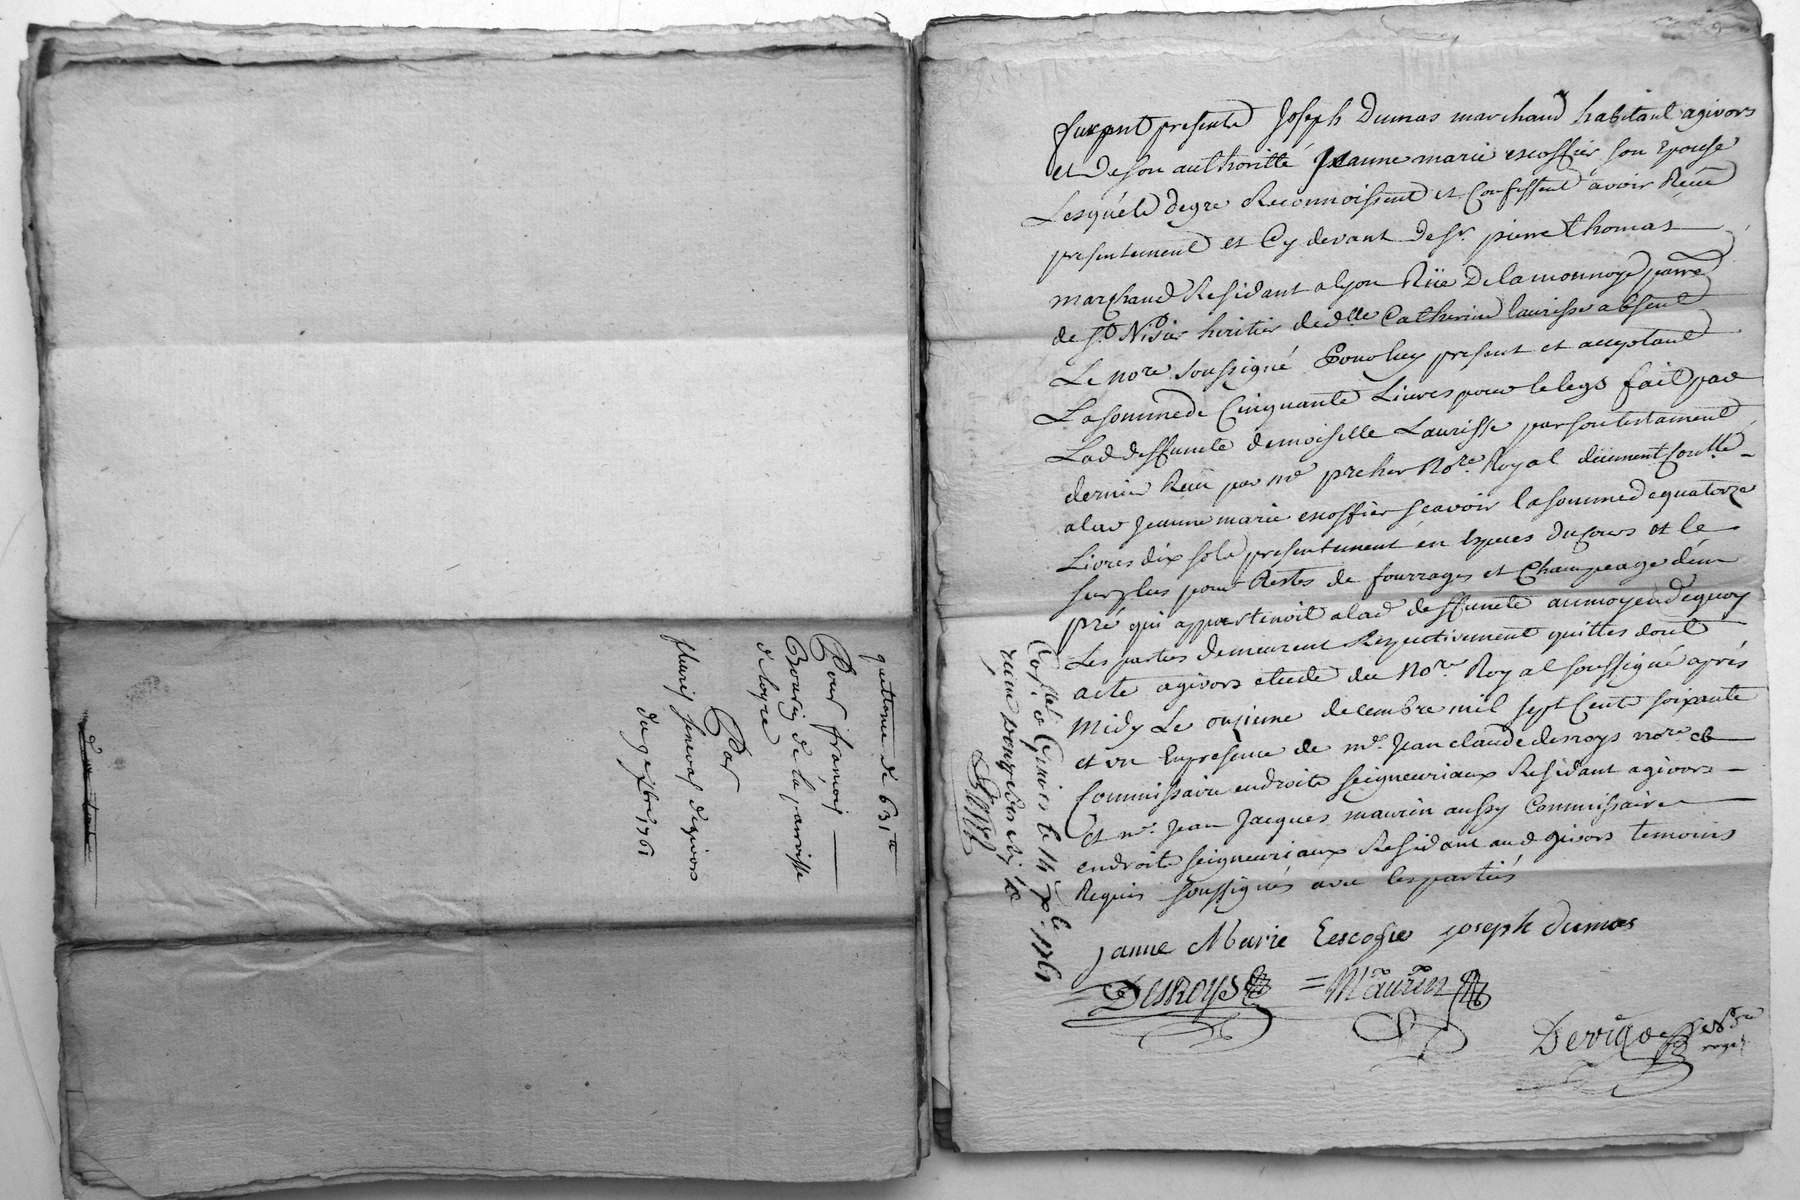 quittance de 63# 
Pour françois
Bouvier de la parroisse
de loyre
Par
fleury jeneval degivors
du 9e 7bre 1761
furent presents Joseph Dumas marchand habitant agivors
et de son authoritté Jeanne marie escoffier son Epouse
Lesquels degre Reconnoissent et Confessent avoir Reçeu
presentement et Cy devant de Sr. pierre thomas
marchand Residant alyon Rüe De lamonnoye parre
de St Nisier heritier de dlle Catherine laurisse absent
Le nore soussigné Pour luy present et acceptant
La somme de Cinquante Livres pour le legs fait par
Lad deffunte demoiselle Laurisse par son testament
dernier Reçu par me prcher Nore Royal düement Conttlé
alad Jeanne marie escoffier scavoir la somme de quatorze
Livres dix sols presentement en Especes Du Cours et le
surplus pour Restes de fourrages et Champeage d'un
pré qui appartenoit alad deffunte au moyen de quoy
Les parties demeurent Respectivement quittes dont
acte agivors etude du Nore Royal soussigné aprés
midy Le onzieme decembre mil sept Cent soixante
et un En presence de me. Jean claude desroys nore et
Commissaire en droits seigneuriaux Residant agivors
et me. Jean Jacques maurin aussy Commissaire
en droits seigneuriaux Residant aud givors temoins
Requis soussignés avec les parties
janne Marie Eescofie joseph dumas
DESROYS = Maurin
Devigo
Conttlé a Givors le 14 Xbre 1761